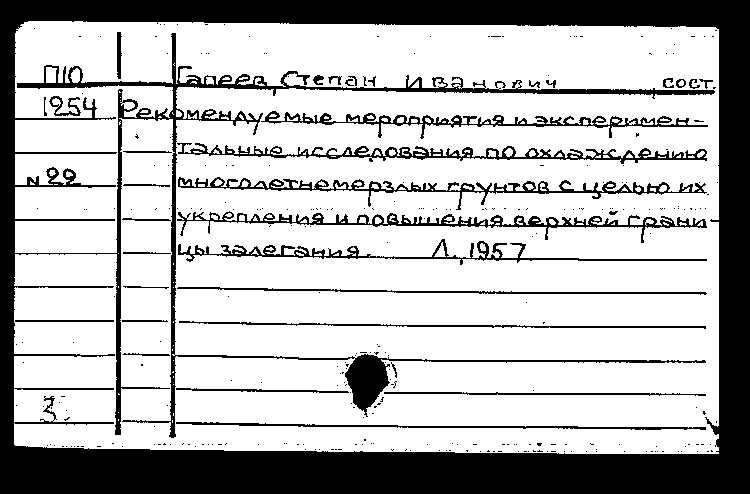 П10 Гапеев, Степан Иванович сост.
1254 Рекомендуемые мероприятия и эксперимен-
тальные исследования по охлаждению
№22 многолетнемерзлых грунтов с целью их
укрепления и повышения верхней грани-
цы залегания. Л., 1957
3.